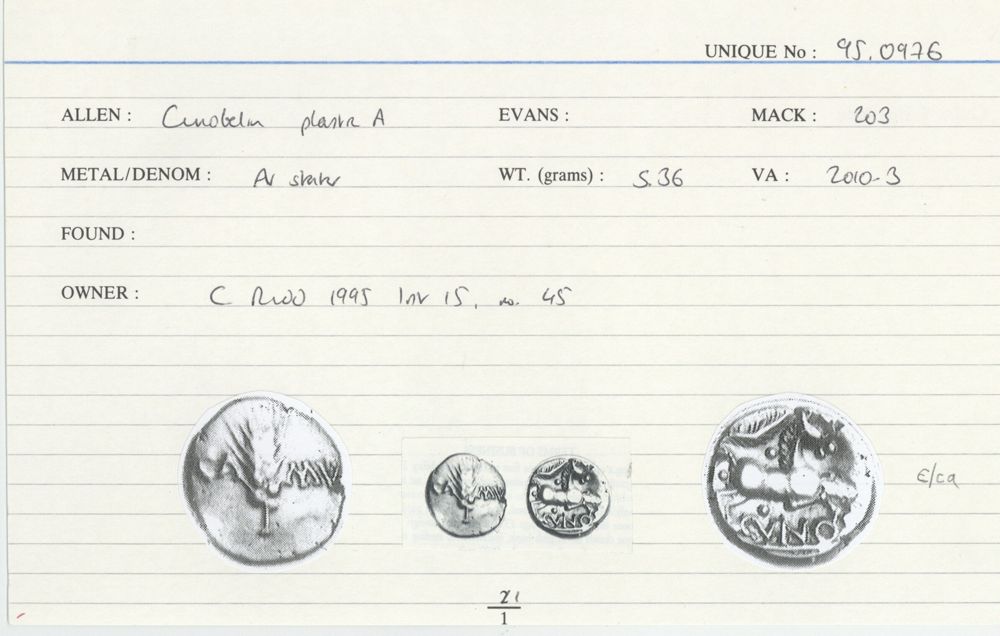 UNIQUE No : 95.0976
ALLEN : Cunobelin plastic A EVANS : MACK : 203
METAL/DENOM : AV stater WT. (grams) : 5.36 VA : 2010-3
FOUND :
OWNER : C Rudd 1995 List 15, no. 45
CVNO
E/ca
21
1